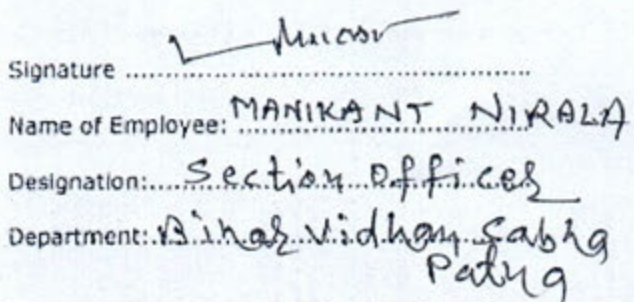 Signature
Name of Employee: MANIKANT NIRALA
Designation: Section Officer
Department: Bihar Vidhan Sabha
Patna